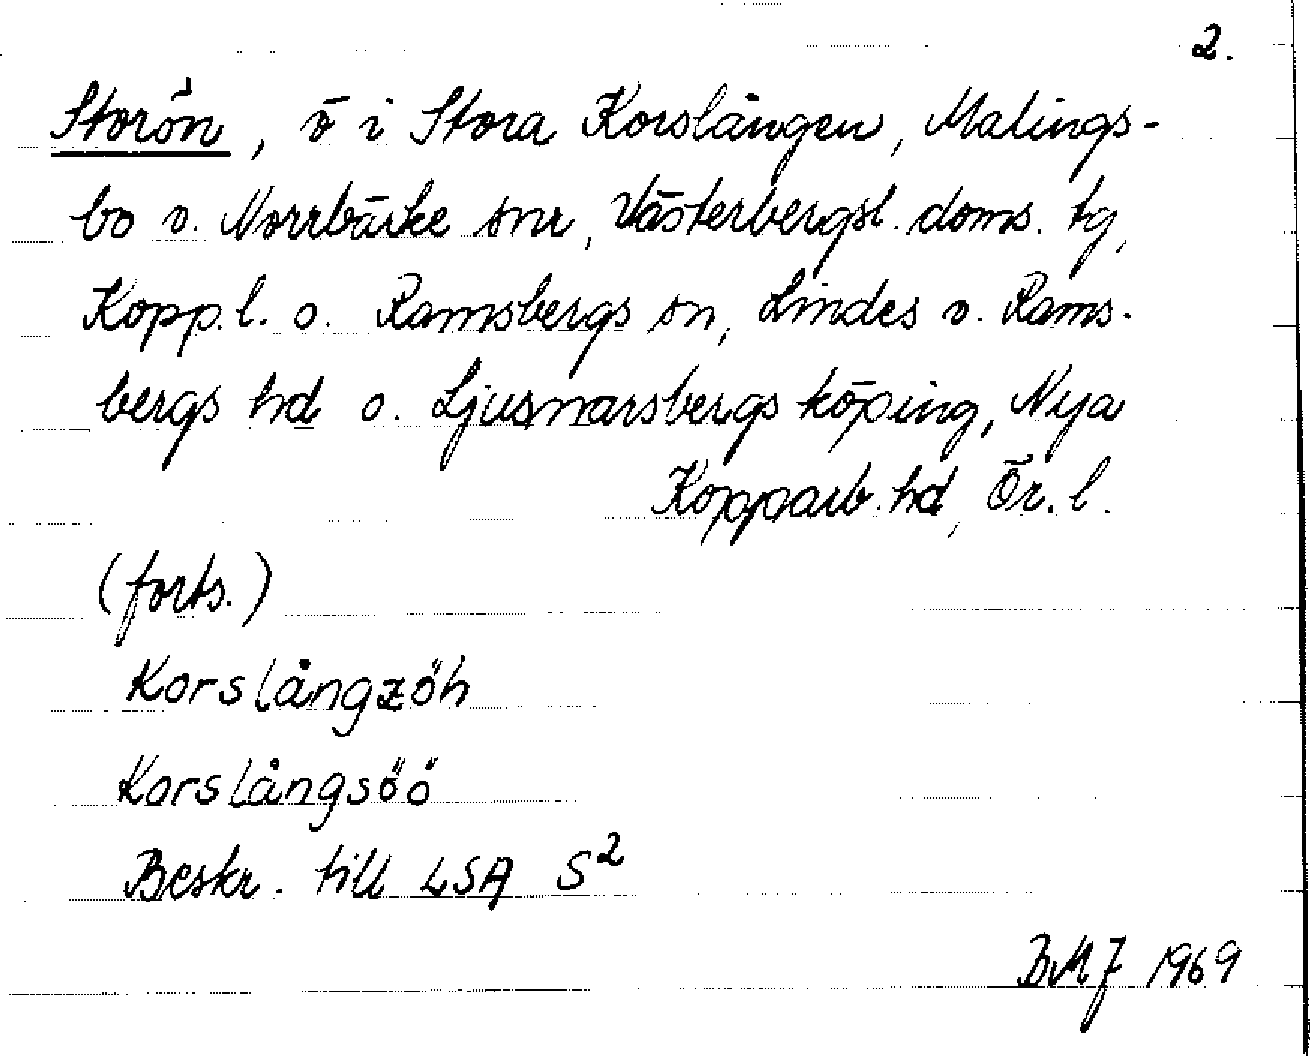 2.
Storön, ö i Stora Korslången, Malings-
bo o. Norrbärke snr, Västerbergsl. doms. tg,
Kopp. l. o. Ramsbergs sn, Lindes o. Rams-
bergs hd o. Ljusnarsbergs köping, Nya
Kopparb. hd, Ör. l.
(forts.)
Korslångzöh
Korslångsöö
Beskr. till LSA S²
BMJ 1969